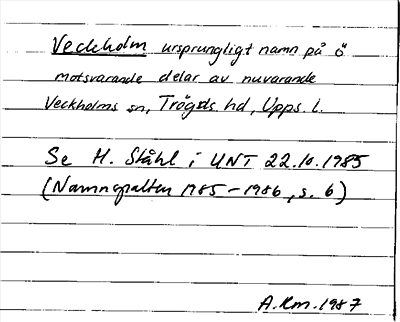 Veckholm ursprungligt namn på ö
motsvarande delar av nuvarande
Veckholms sn, Trögds hd, Upps. l.
Se H. Ståhl i UNT 22.10.1985
(Namnspalten 1985-1986, s. 6)
A.Rm.1987